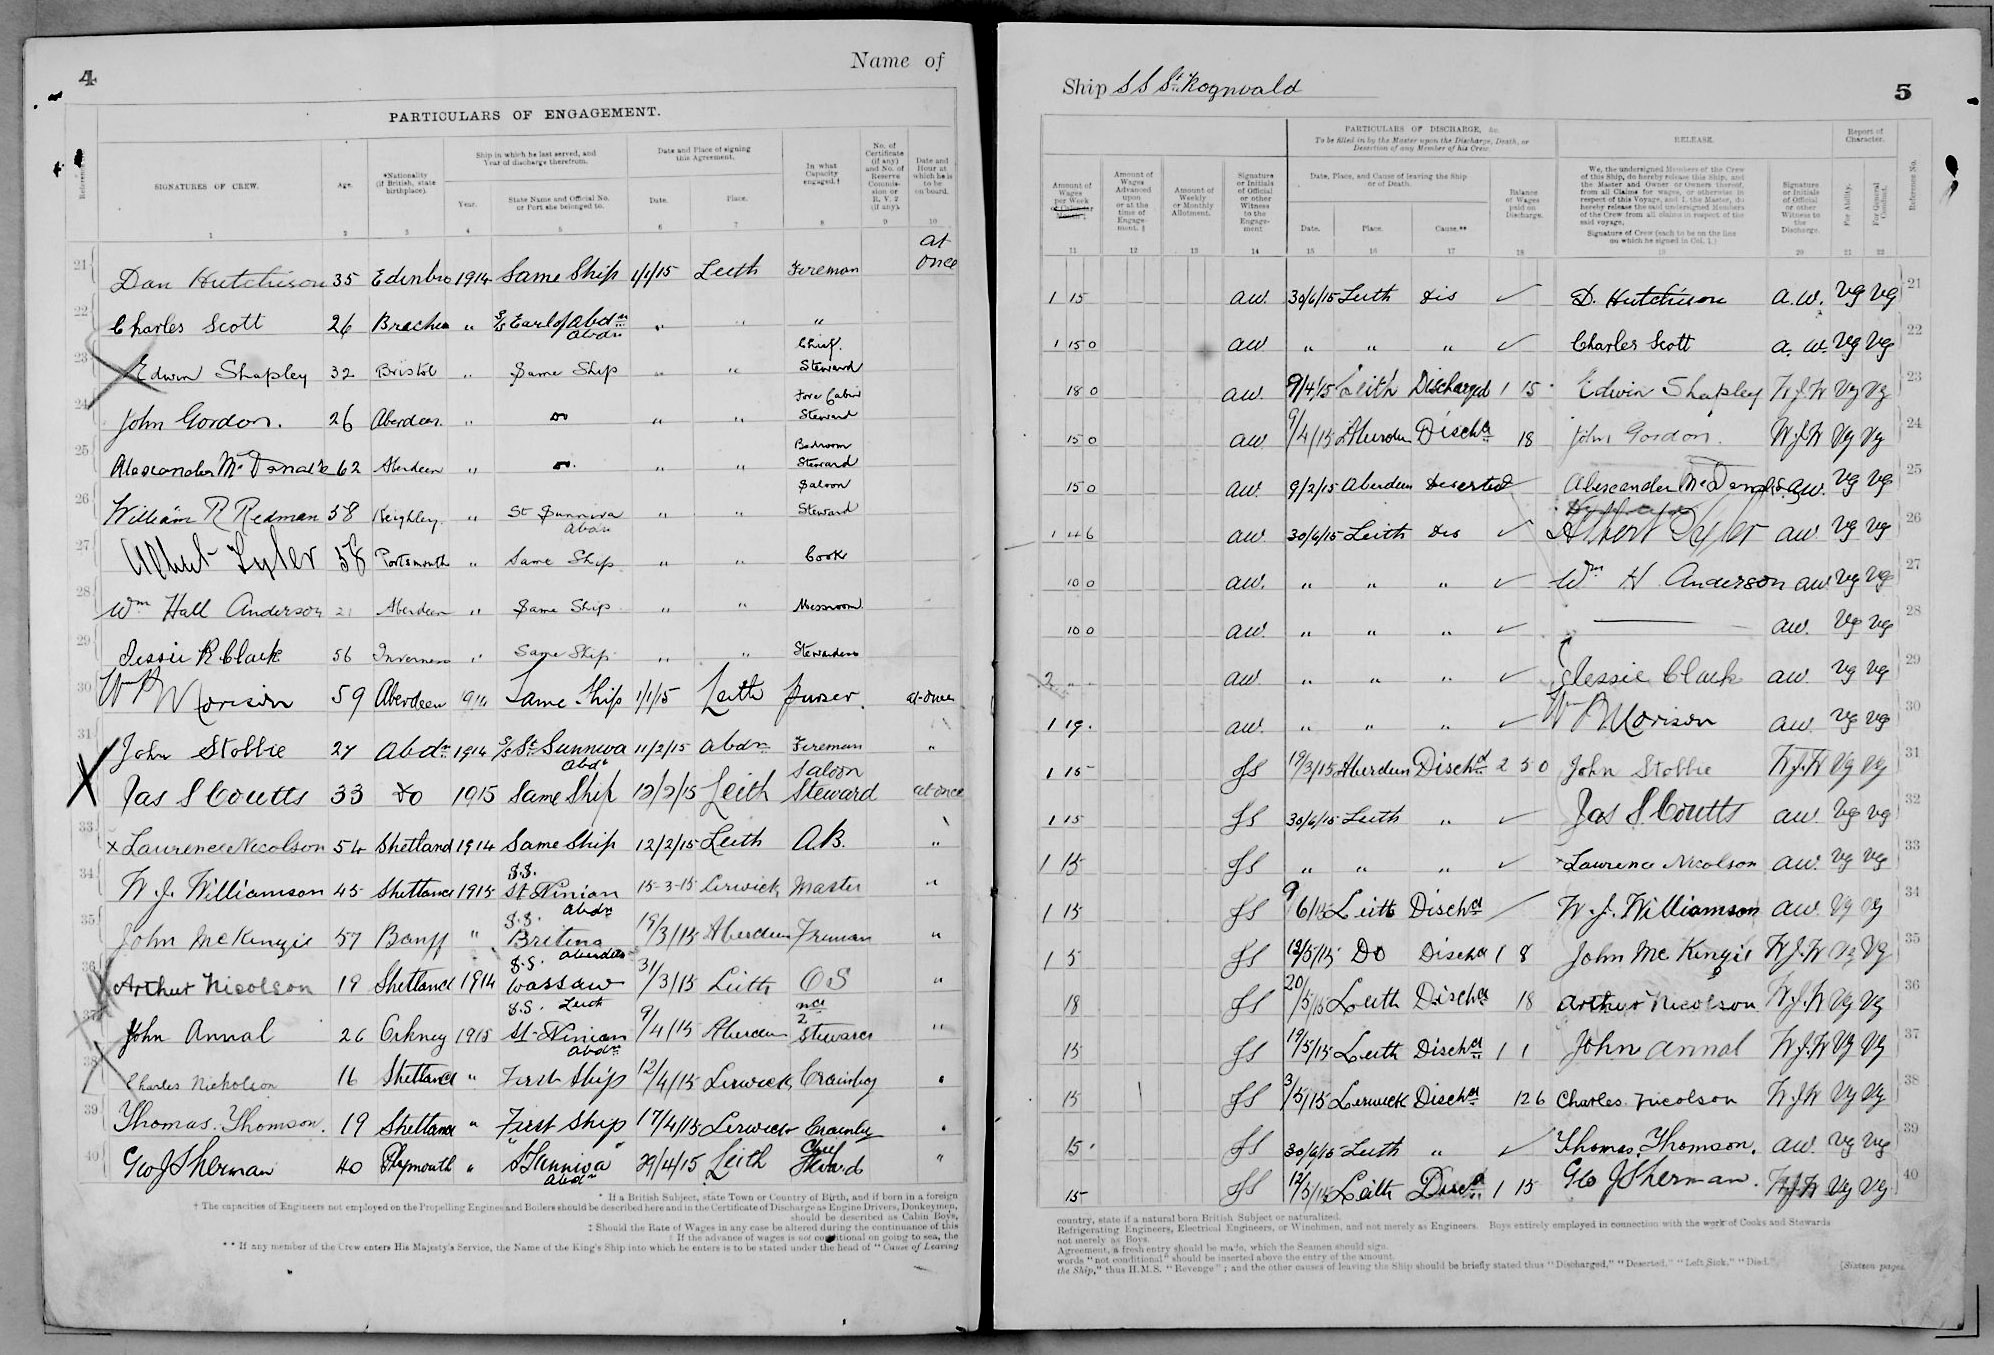 4
Name of
PARTICULARS OF ENGAGEMENT.
Reference No.
SIGNATURES OF CREW.
Age.
*Nationality (if British, state birthplace).
Ship in which he last served, and Year of discharge therefrom.
Year.
State Name and Official No. or Port she belonged to.
Date and Place of signing this Agreement.
Date.
Place.
In what Capacity engaged.†
No. of Certificate (if any) and No. of Reserve Commission or R.V.2 (if any).
Date and Hour at which he is to be on board.
1 2 3 4 5 6 7 8 9 10
21 Dan Hutchison 35 Edinbro 1914 Same Ship 1/1/15 Leith Fireman at once
22 Charles Scott 26 Brechin " S/S Earl of Abdn Abdn " " "
23 Edwin Shapley 32 Bristol " Same Ship " " Chief Steward
24 John Gordon. 26 Aberdeen " Do " " Fore Cabin Steward
25 Alexander McDonald 62 Aberdeen " Do. " " Bedroom Steward
26 William R Redman 38 Keighley " St Sunniva Abdn " " Saloon Steward
27 Albert Tyler 38 Portsmouth " Same Ship " " Cook
28 Wm Hall Anderson 21 Aberdeen " Same Ship " " Messroom
29 Jessie R Clark 56 Inverness " Same Ship " " Stewardess
30 Wm P Morison 59 Aberdeen 1914 Same Ship 1/1/15 Leith Purser. at once
31 John Stobbie 27 Abdn 1914 S/S St Sunniva Abdn 11/2/15 Abdn Fireman "
Jas S Coutts 33 Do 1915 Same Ship 12/2/15 Leith Saloon Steward at once
33 x Laurence Nicolson 54 Shetland 1914 Same Ship 12/2/15 Leith A.B. "
34 W. J. Williamson 45 Shetland 1915 S.S. St Ninian Abdn 15-3-15 Lerwick Master "
35 John McKenzie 57 Banff " S.S. Britena Aberdeen 19/3/15 Aberdeen Fireman "
36 Arthur Nicolson 19 Shetland 1914 S.S. Wassaw Leith 31/3/15 Leith O S "
37 John Annal 26 Orkney 1915 S.S. St Ninian Abdn 9/4/15 Aberdeen 2 Steward "
38 Charles Nicholson 16 Shetland " First Ship 12/4/15 Lerwick Crainboy "
39 Thomas. Thomson. 19 Shetland " First Ship 17/4/15 Lerwick Crainboy "
40 Geo J Sherman 40 Plymouth " "St Sunniva" Abdn 29/4/15 Leith Chief Steward "
* If a British Subject, state Town or Country of Birth, and if born in a foreign
† The capacities of Engineers not employed on the Propelling Engines and Boilers should be described here and in the Certificate of Discharge as Engine Drivers, Donkeymen,
should be described as Cabin Boys,
‡ Should the Rate of Wages in any case be altered during the continuance of this
† If the advance of wages is not conditional on going to sea, the
** If any member of the Crew enters His Majesty's Service, the Name of the King's Ship into which he enters is to be stated under the head of "Cause of Leaving
Ship S S St. Rognvald
5
Amount of Wages per Week
Amount of Wages Advanced upon or at the time of Engagement. ‡
Amount of Weekly or Monthly Allotment.
Signature or Initials of Official or other Witness to the Engagement
PARTICULARS OF DISCHARGE, &c.
To be filled in by the Master upon the Discharge, Death, or Desertion of any Member of his Crew.
Date, Place, and Cause of leaving the Ship or of Death.
Date. Place. Cause.**
Balance of Wages paid on Discharge.
RELEASE.
We, the undersigned Members of the Crew of this Ship, do hereby release this Ship, and the Master and Owner or Owners thereof, from all Claims for wages, or otherwise in respect of this Voyage, and I, the Master, do hereby release the said undersigned Members of the Crew from all claims in respect of the said voyage.
Signature of Crew (each to be on the line on which he signed in Col. 1.)
Signature or Initials of Official or other Witness to the Discharge.
Report of Character.
For Ability.
For General Conduct.
Reference No.
11 12 13 14 15 16 17 18 19 20 21 22
1 15 aw. 30/6/15 Leith Dis ✓ D. Hutchison a.w. Vg Vg 21
1 15 0 aw " " " ✓ Charles Scott a. w. Vg Vg 22
18 0 aw. 9/4/15 Leith Discharged 1 15 Edwin Shapley W.J.W Vg Vg 23
15 0 aw 9/4/15 Aberdeen Dischd 18 John Gordon. W.J.W Vg Vg 24
15 0 aw. 9/2/15 Aberdeen Deserted Alexander McDonald aw. Vg Vg 25
1 4 6 aw. 30/6/15 Leith Dis ✓ Albert Tyler aw Vg Vg 26
10 0 aw. " " " ✓ Wm H Anderson aw Vg Vg 27
10 0 aw. " " " ✓ aw. Vg Vg 28
aw. " " " ✓ Jessie Clark aw. Vg Vg 29
1 19. aw. " " " ✓ Wm P Morison aw. Vg Vg 30
1 15 JS 19/3/15 Aberdeen Dischd 2 5 0 John Stobbie W.J.W Vg Vg 31
1 15 JS 30/6/15 Leith " ✓ Jas S. Coutts aw. Vg Vg 32
1 15 JS " " " ✓ Laurence Nicolson aw. Vg Vg 33
1 15 JS 9/6/15 Leith Dischd W. J. Williamson aw. Vg Vg 34
1 5 JS 12/5/15 Do Dischd 1 8 John McKenzie W.J.W Vg Vg 35
18 JS 20/5/15 Leith Dischd 18 Arthur Nicolson W.J.W Vg Vg 36
15 JS 19/5/15 Leith Dischd 1 1 John Annal W.J.W Vg Vg 37
15 JS 3/5/15 Lerwick Dischd 12 6 Charles Nicolson W.J.W Vg Vg 38
15 JS 30/6/15 Leith " ✓ Thomas. Thomson. aw. Vg Vg 39
15 JS 12/5/15 Leith Dischd 1 15 Geo J Sherman. W.J.W Vg Vg 40
country, state if a natural born British Subject or naturalized.
Refrigerating Engineers, Electrical Engineers, or Winchmen, and not merely as Engineers. Boys entirely employed in connection with the work of Cooks and Stewards
not merely as Boys.
Agreement, a fresh entry should be made, which the Seamen should sign.
words "not conditional" should be inserted above the entry of the amount.
the Ship," thus H.M.S. "Revenge"; and the other causes of leaving the Ship should be briefly stated thus "Discharged," "Deserted," "Left Sick," "Died."
[Sixteen pages.